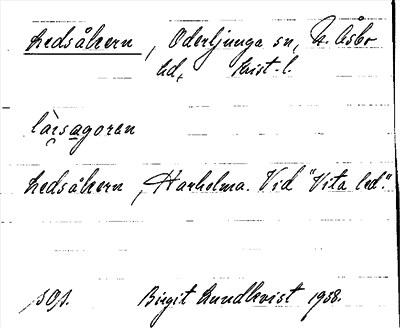 Ledsåkern, Oderljunga sn, N. Åsbo
hd, Krist-l.
Ledsåkern, Harholma. Vid "Vita led".
Birgit Lundkvist 1938.